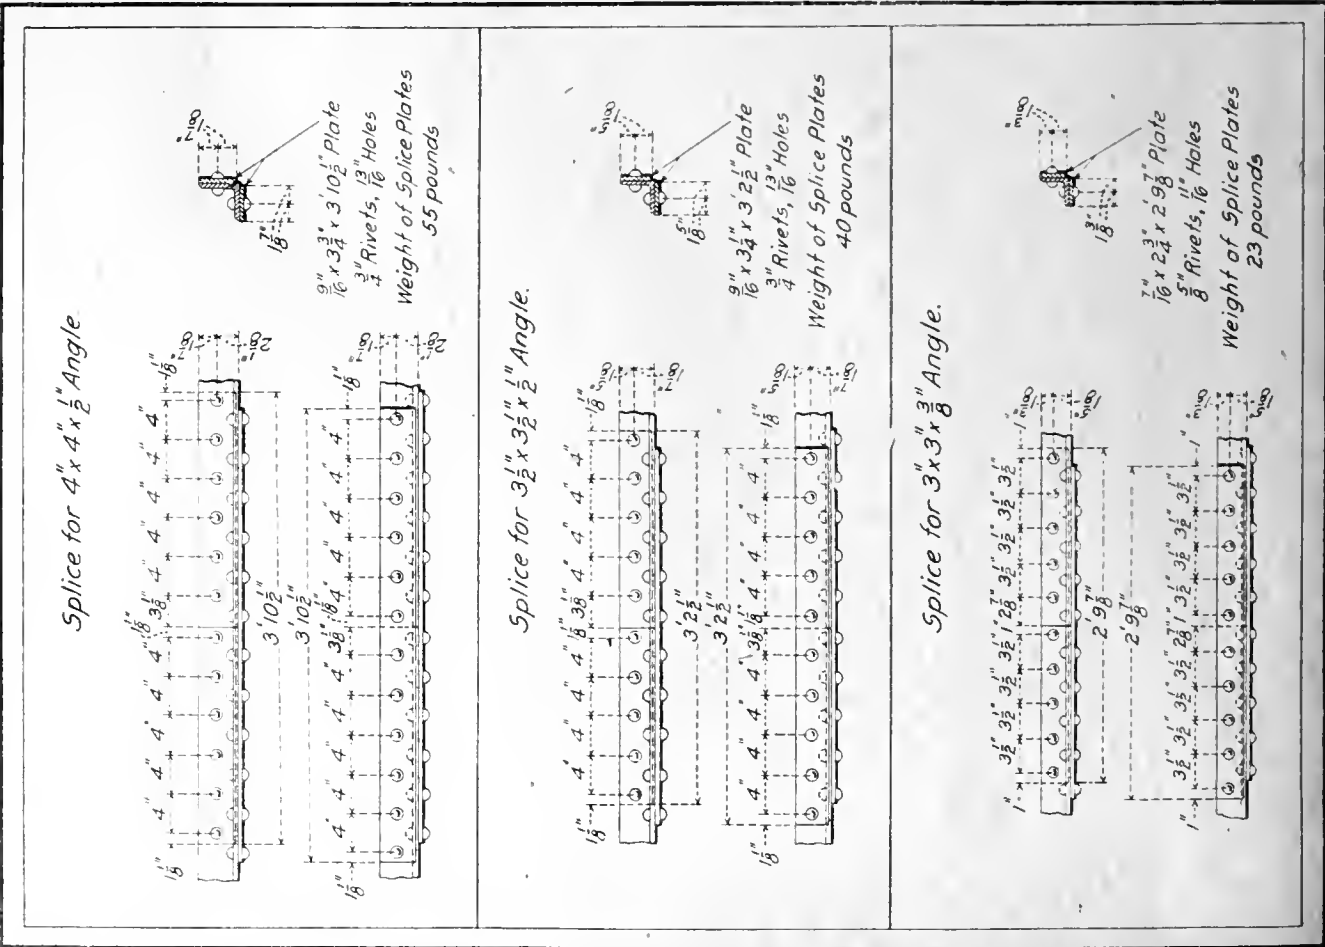 Splice for 4" x 4" x 1/2" Angle.
1 1/8" 4" 4" 4" 4" 4" 1 1/8" 3 1/8" 4" 4" 4" 4" 4" 1 1/8"
1 7/8"
2 1/8"
3' 10 1/2"
3' 10 1/2"
1 1/8" 4" 4" 4" 4" 4" 3 1/8" 1 1/8" 4" 4" 4" 4" 4" 1 1/8"
1 7/8"
2 1/8"
1 7/8"
1 7/8"
9/16" x 3 3/4" x 3' 10 1/2" Plate
3/4" Rivets, 13/16" Holes
Weight of Splice Plates
55 pounds
Splice for 3 1/2" x 3 1/2" x 1/2" Angle.
1 1/8" 4" 4" 4" 4" 1 1/8" 3 1/8" 4" 4" 4" 4" 1 1/8"
1 5/8"
1 7/8"
3' 2 1/2"
3' 2 1/2"
1 1/8" 4" 4" 4" 4" 3 1/8" 1 1/8" 4" 4" 4" 4" 1 1/8"
1 5/8"
1 7/8"
1 5/8"
1 5/8"
9/16" x 3 1/4" x 3' 2 1/2" Plate
3/4" Rivets, 13/16" Holes
Weight of Splice Plates
40 pounds
Splice for 3" x 3" x 3/8" Angle.
1" 3 1/2" 3 1/2" 3 1/2" 3 1/2" 1" 2 7/8" 3 1/2" 3 1/2" 3 1/2" 3 1/2" 1"
1 3/8"
1 5/8"
2' 9 7/8"
2' 9 7/8"
1" 3 1/2" 3 1/2" 3 1/2" 3 1/2" 2 7/8" 1" 3 1/2" 3 1/2" 3 1/2" 3 1/2" 1"
1 3/8"
1 5/8"
1 3/8"
1 3/8"
7/16" x 2 3/4" x 2' 9 7/8" Plate
5/8" Rivets, 11/16" Holes
Weight of Splice Plates
23 pounds